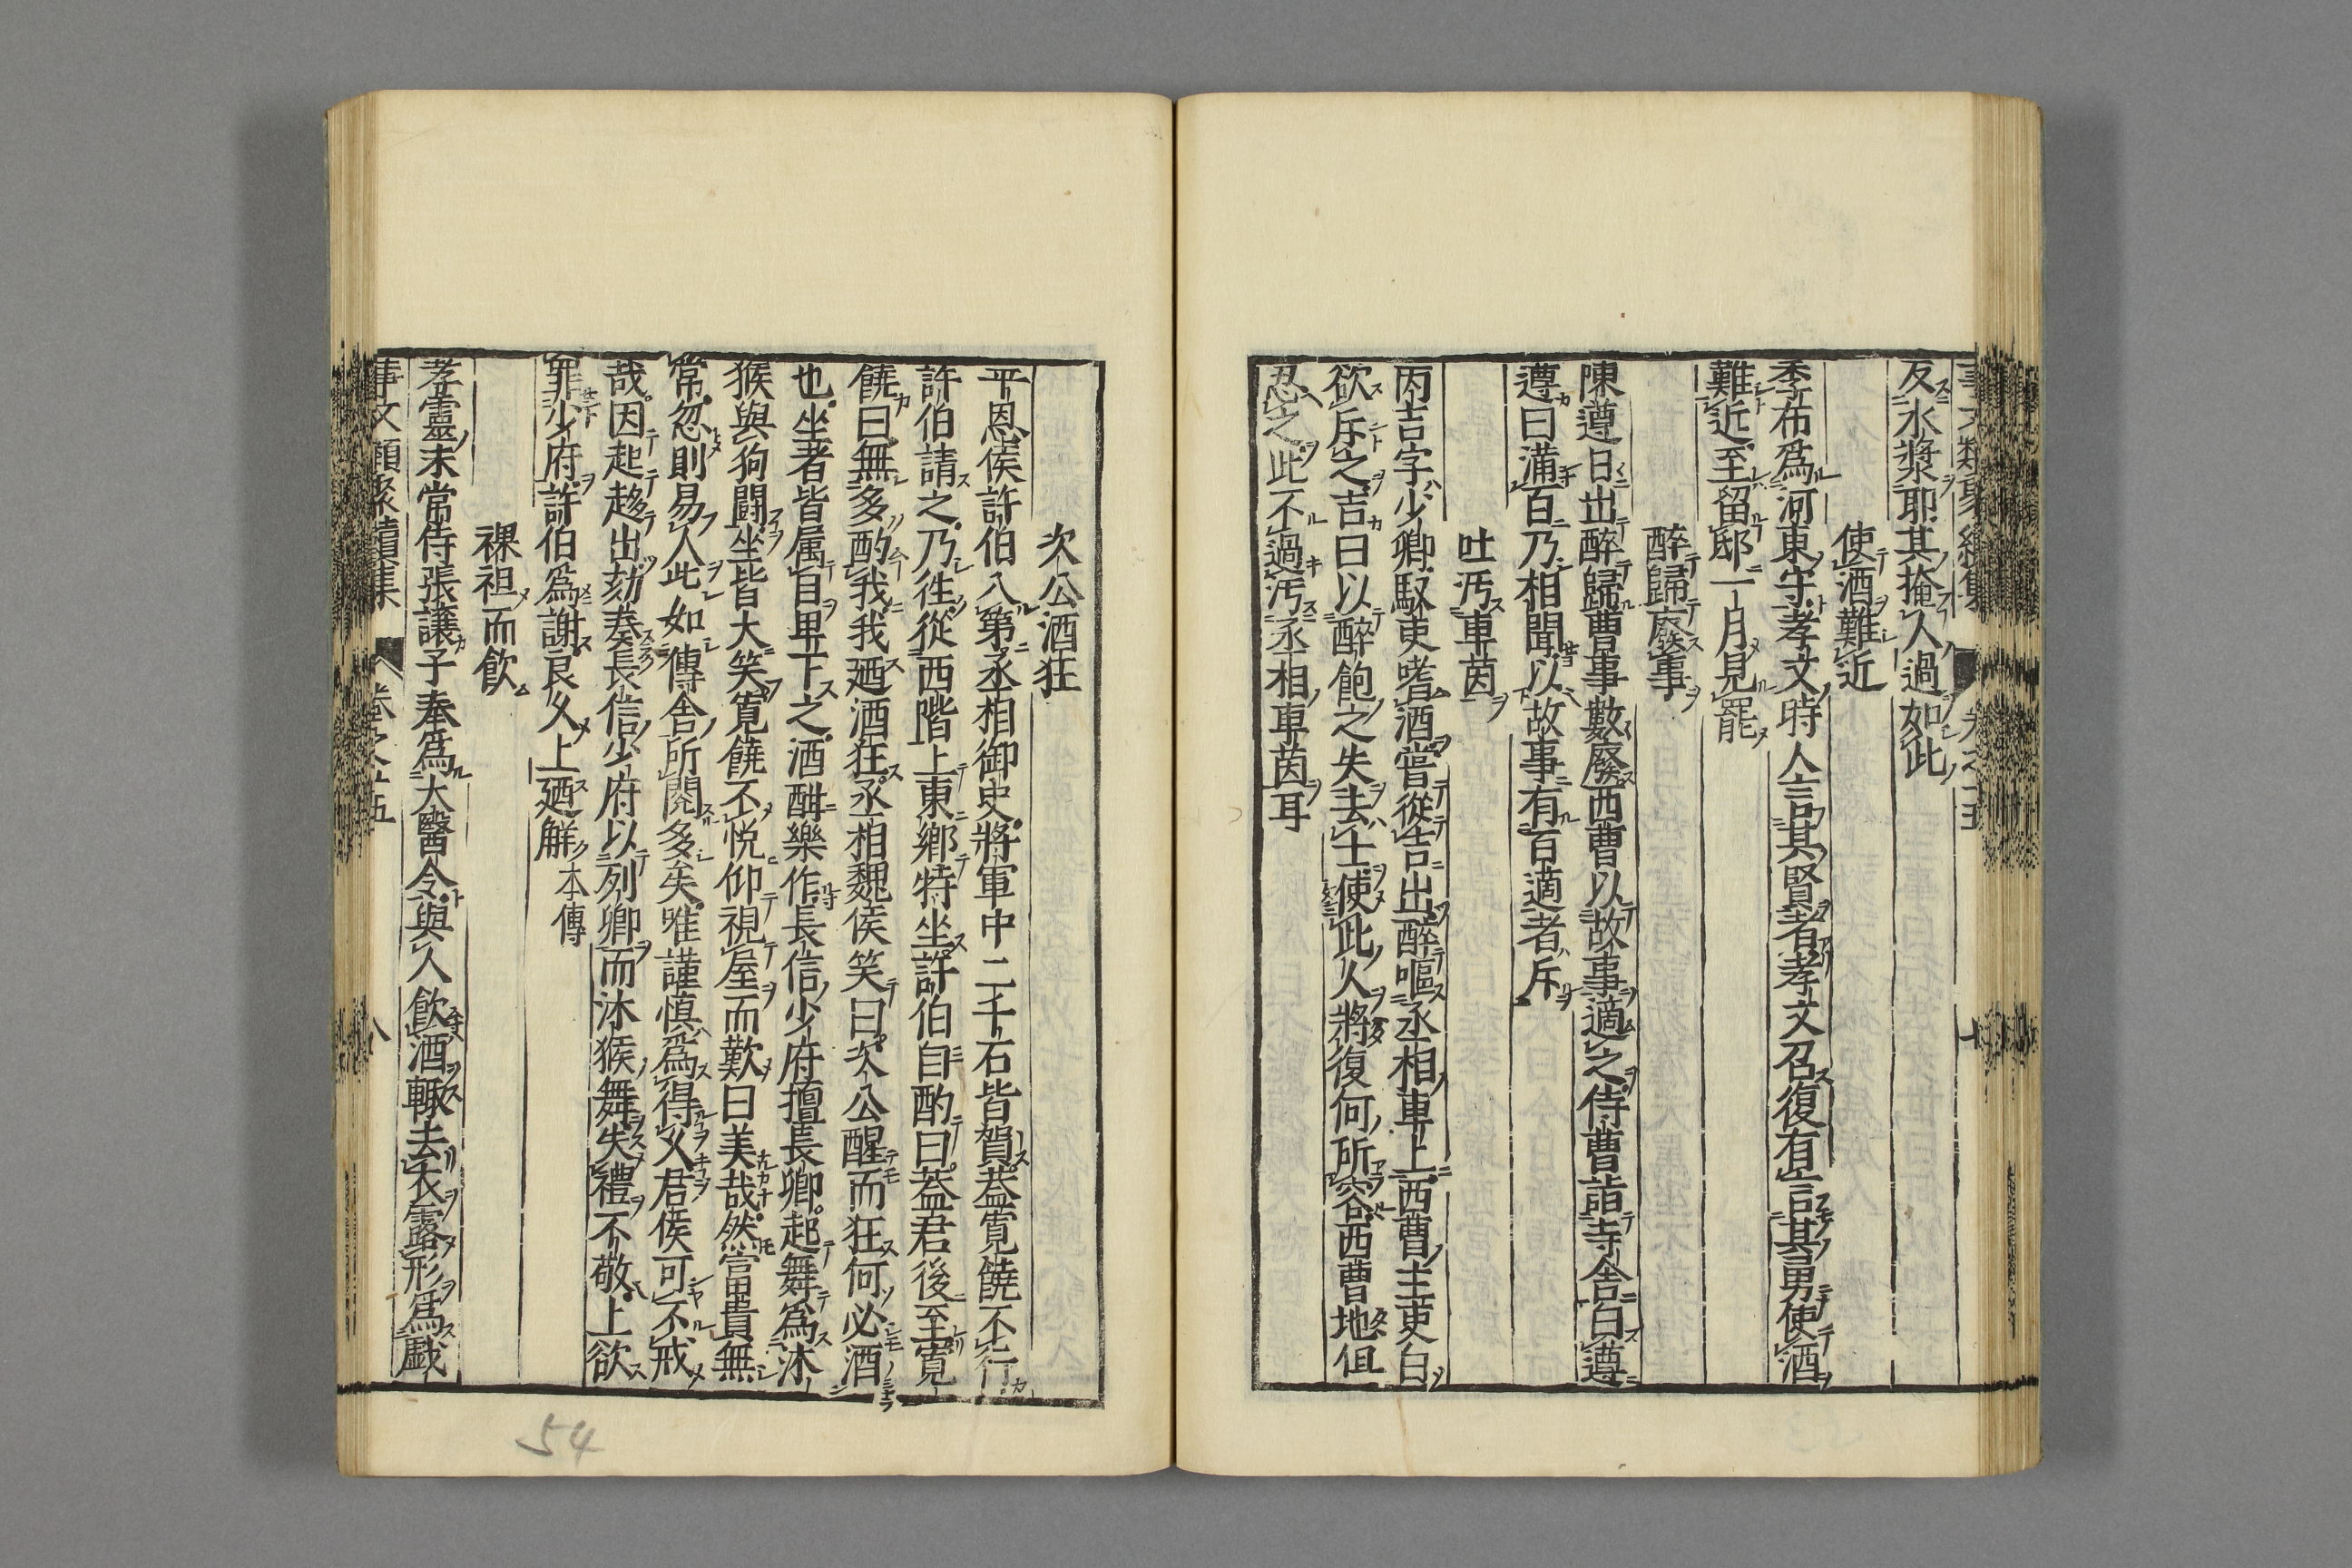 反水漿耶其掩人過如此
使酒難近
季布爲河東守孝文時人言其賢者孝文召復有言其勇使酒
難近至留邸一月見罷
醉歸廢事
陳遵日出醉歸曹事數廢西曹以故事適之侍曹詣寺舍白遵
遵曰滿百乃相聞以故事有百適者斥
吐汚車茵
丙吉字少卿馭吏嗜酒嘗從吉出醉嘔丞相車上西曹主吏白
欲斥之吉曰以醉飽之失去士使此人將復何所容西曹地但
忍之此不過汚丞相車茵耳
次公酒狂
平恩侯許伯入第丞相御史將軍中二千石皆賀葢寛饒不行
許伯請之乃徃從西階上東郷特坐許伯自酌曰葢君後至寛
饒曰無多酌我我廼酒狂丞相魏侯笑曰次公醒而狂何必酒
也坐者皆属目卑下之酒酣樂作長信少府擅長卿起舞爲沐
猴與狗鬪坐皆大笑寛饒不悦仰視屋而歎曰美哉然富貴無
常忽則易人此如傳舎所閲多矣唯謹慎爲得乆君侯可不戒
哉因起趍出劾奏長信少府以列卿而沐猴舞失禮不敬上欲
罪少府許伯爲謝良乆上廼觧本傳
裸袒而飲
孝靈末常侍張讓子奉爲大醫令與人飲酒輙去衣露形爲戯
事文類聚續集 卷之十五 八